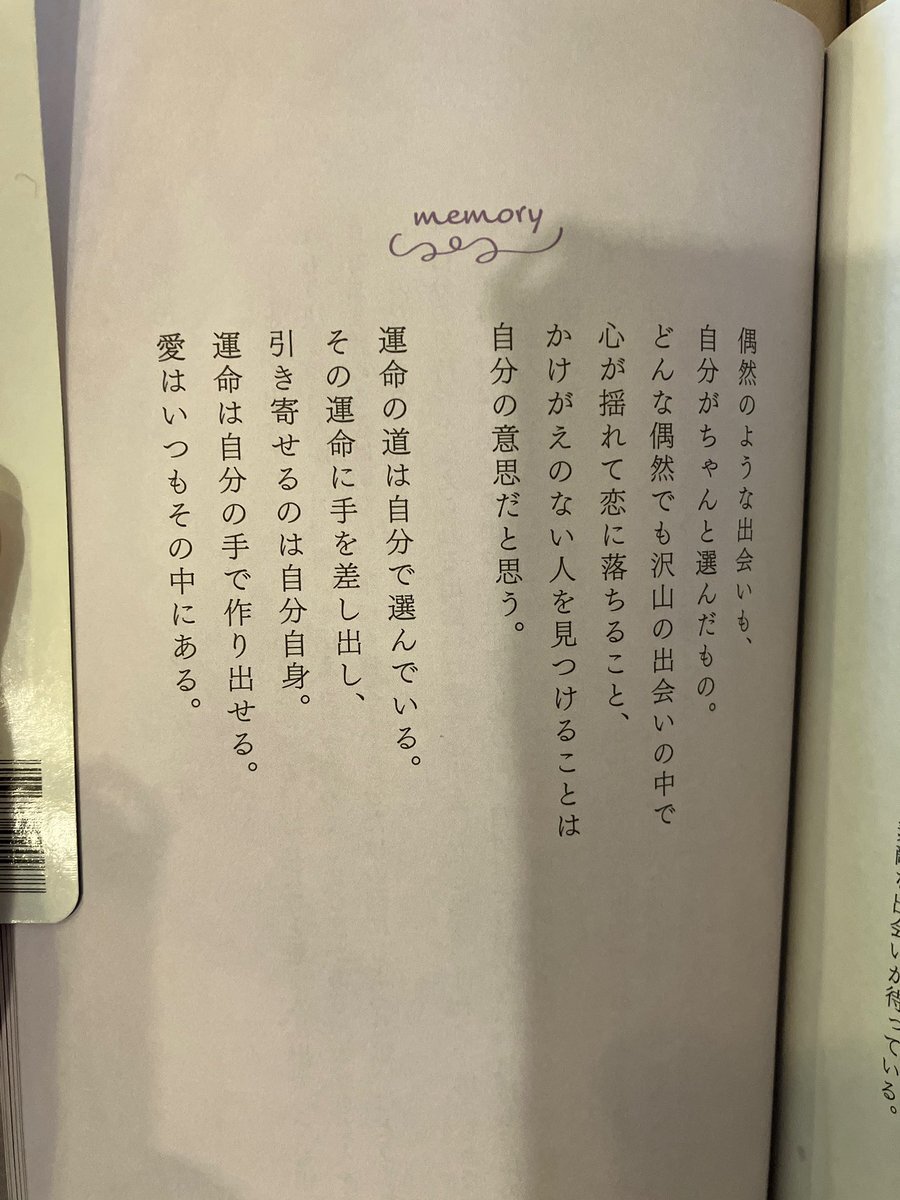 memory
偶然のような出会いも、
自分がちゃんと選んだもの。
どんな偶然でも沢山の出会いの中で
心が揺れて恋に落ちること、
かけがえのない人を見つけることは
自分の意思だと思う。
運命の道は自分で選んでいる。
その運命に手を差し出し、
引き寄せるのは自分自身。
運命は自分の手で作り出せる。
愛はいつもその中にある。
敵な出会いが待っている。